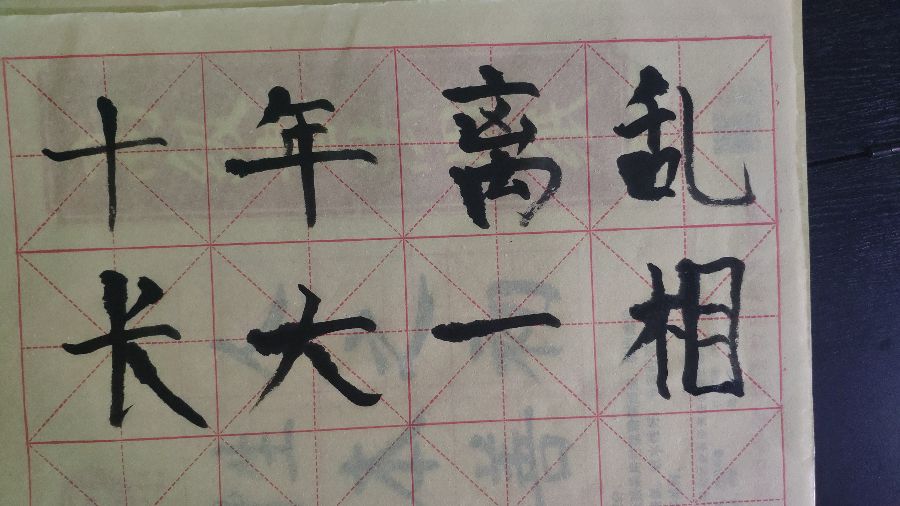 十年离乱
长大一相